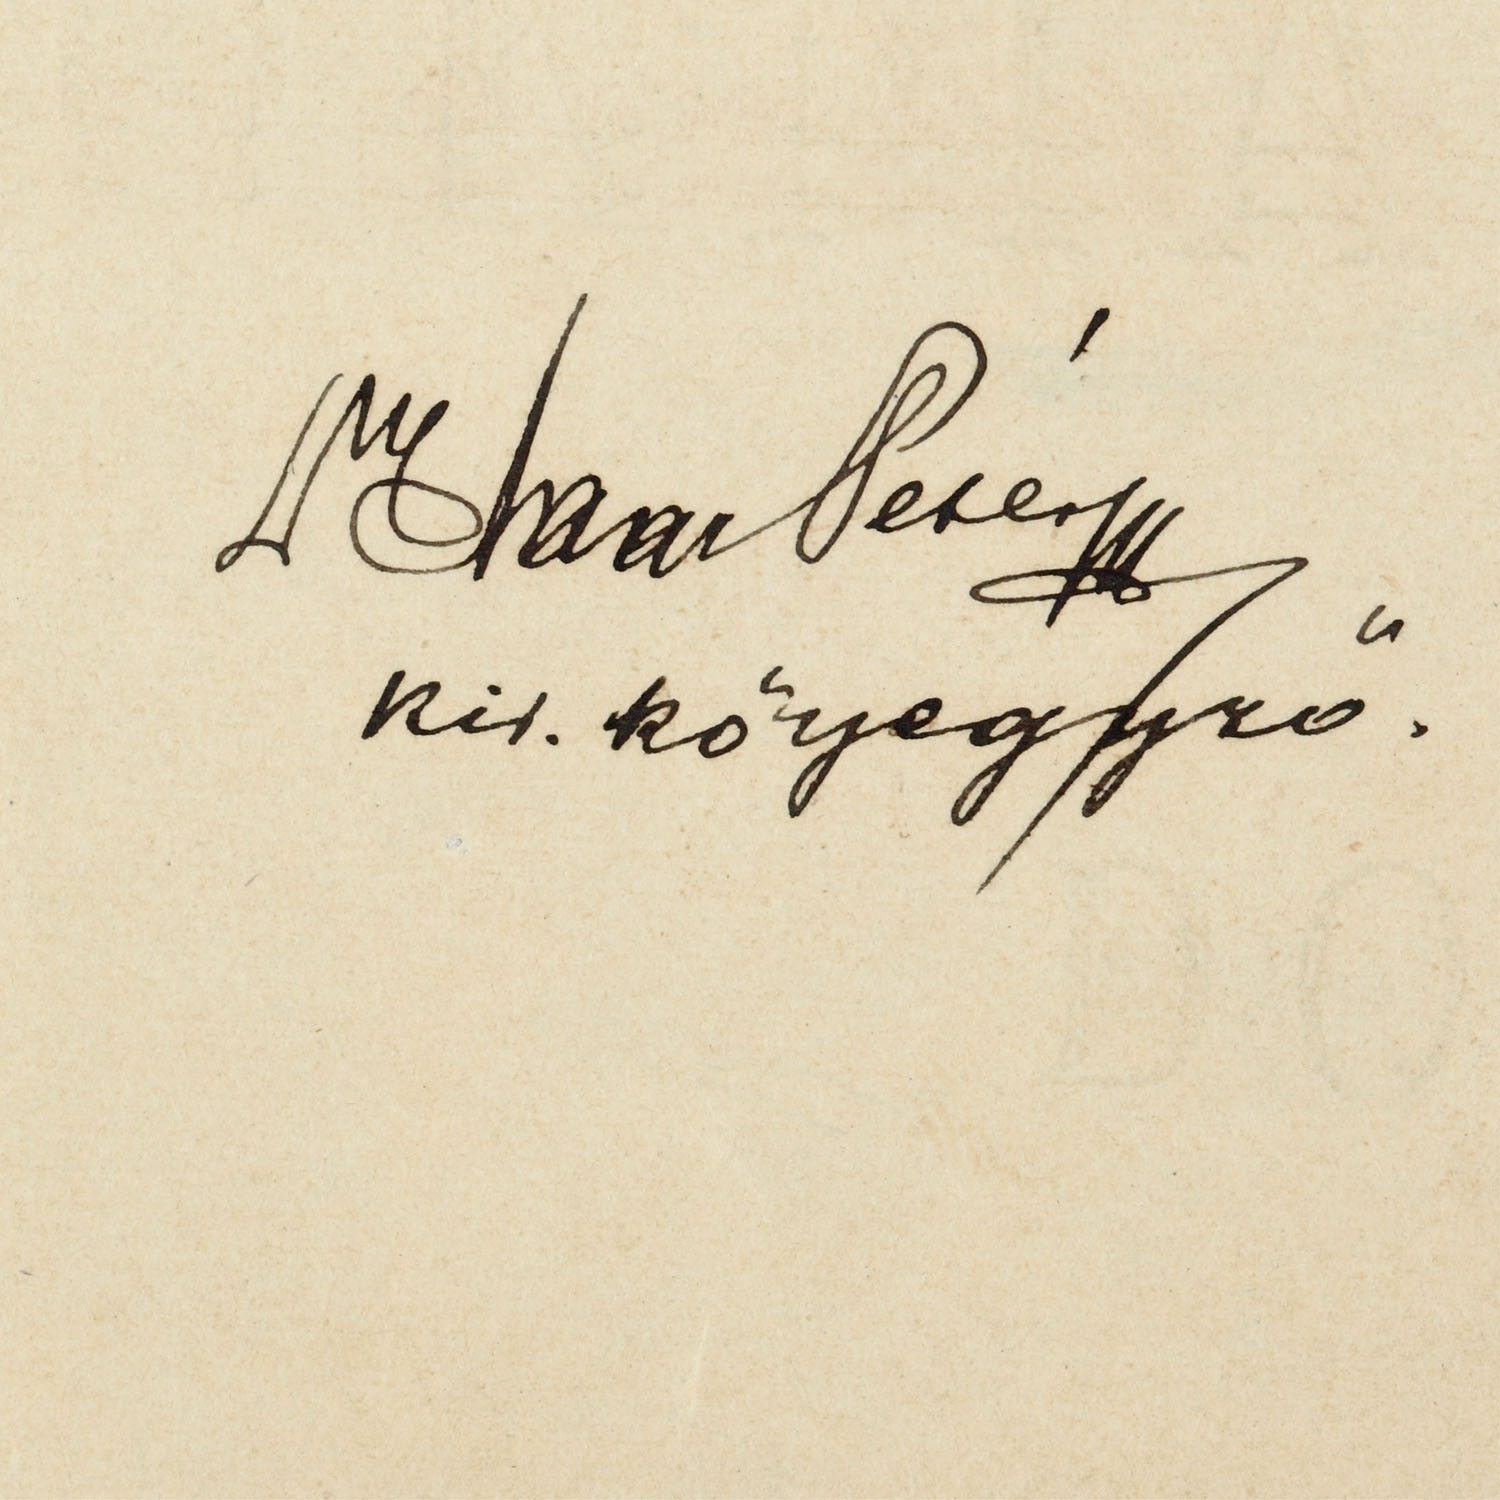 Dr Isaac Péter
kir. közjegyző.